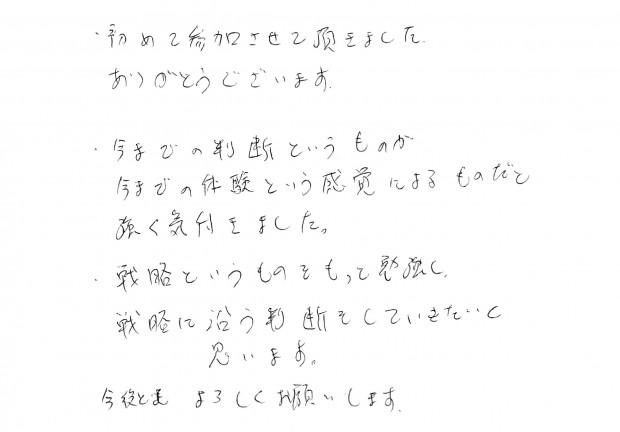 ・初めて参加させて頂きました.
ありがとうございます.
・今までの判断というものが
今までの体験という感覚によるものだと
強く気付きました。
・戦略というものをもって勉強し、
戦略に沿う判断をしていきたいと
思います。
今後とも よろしくお願いします.